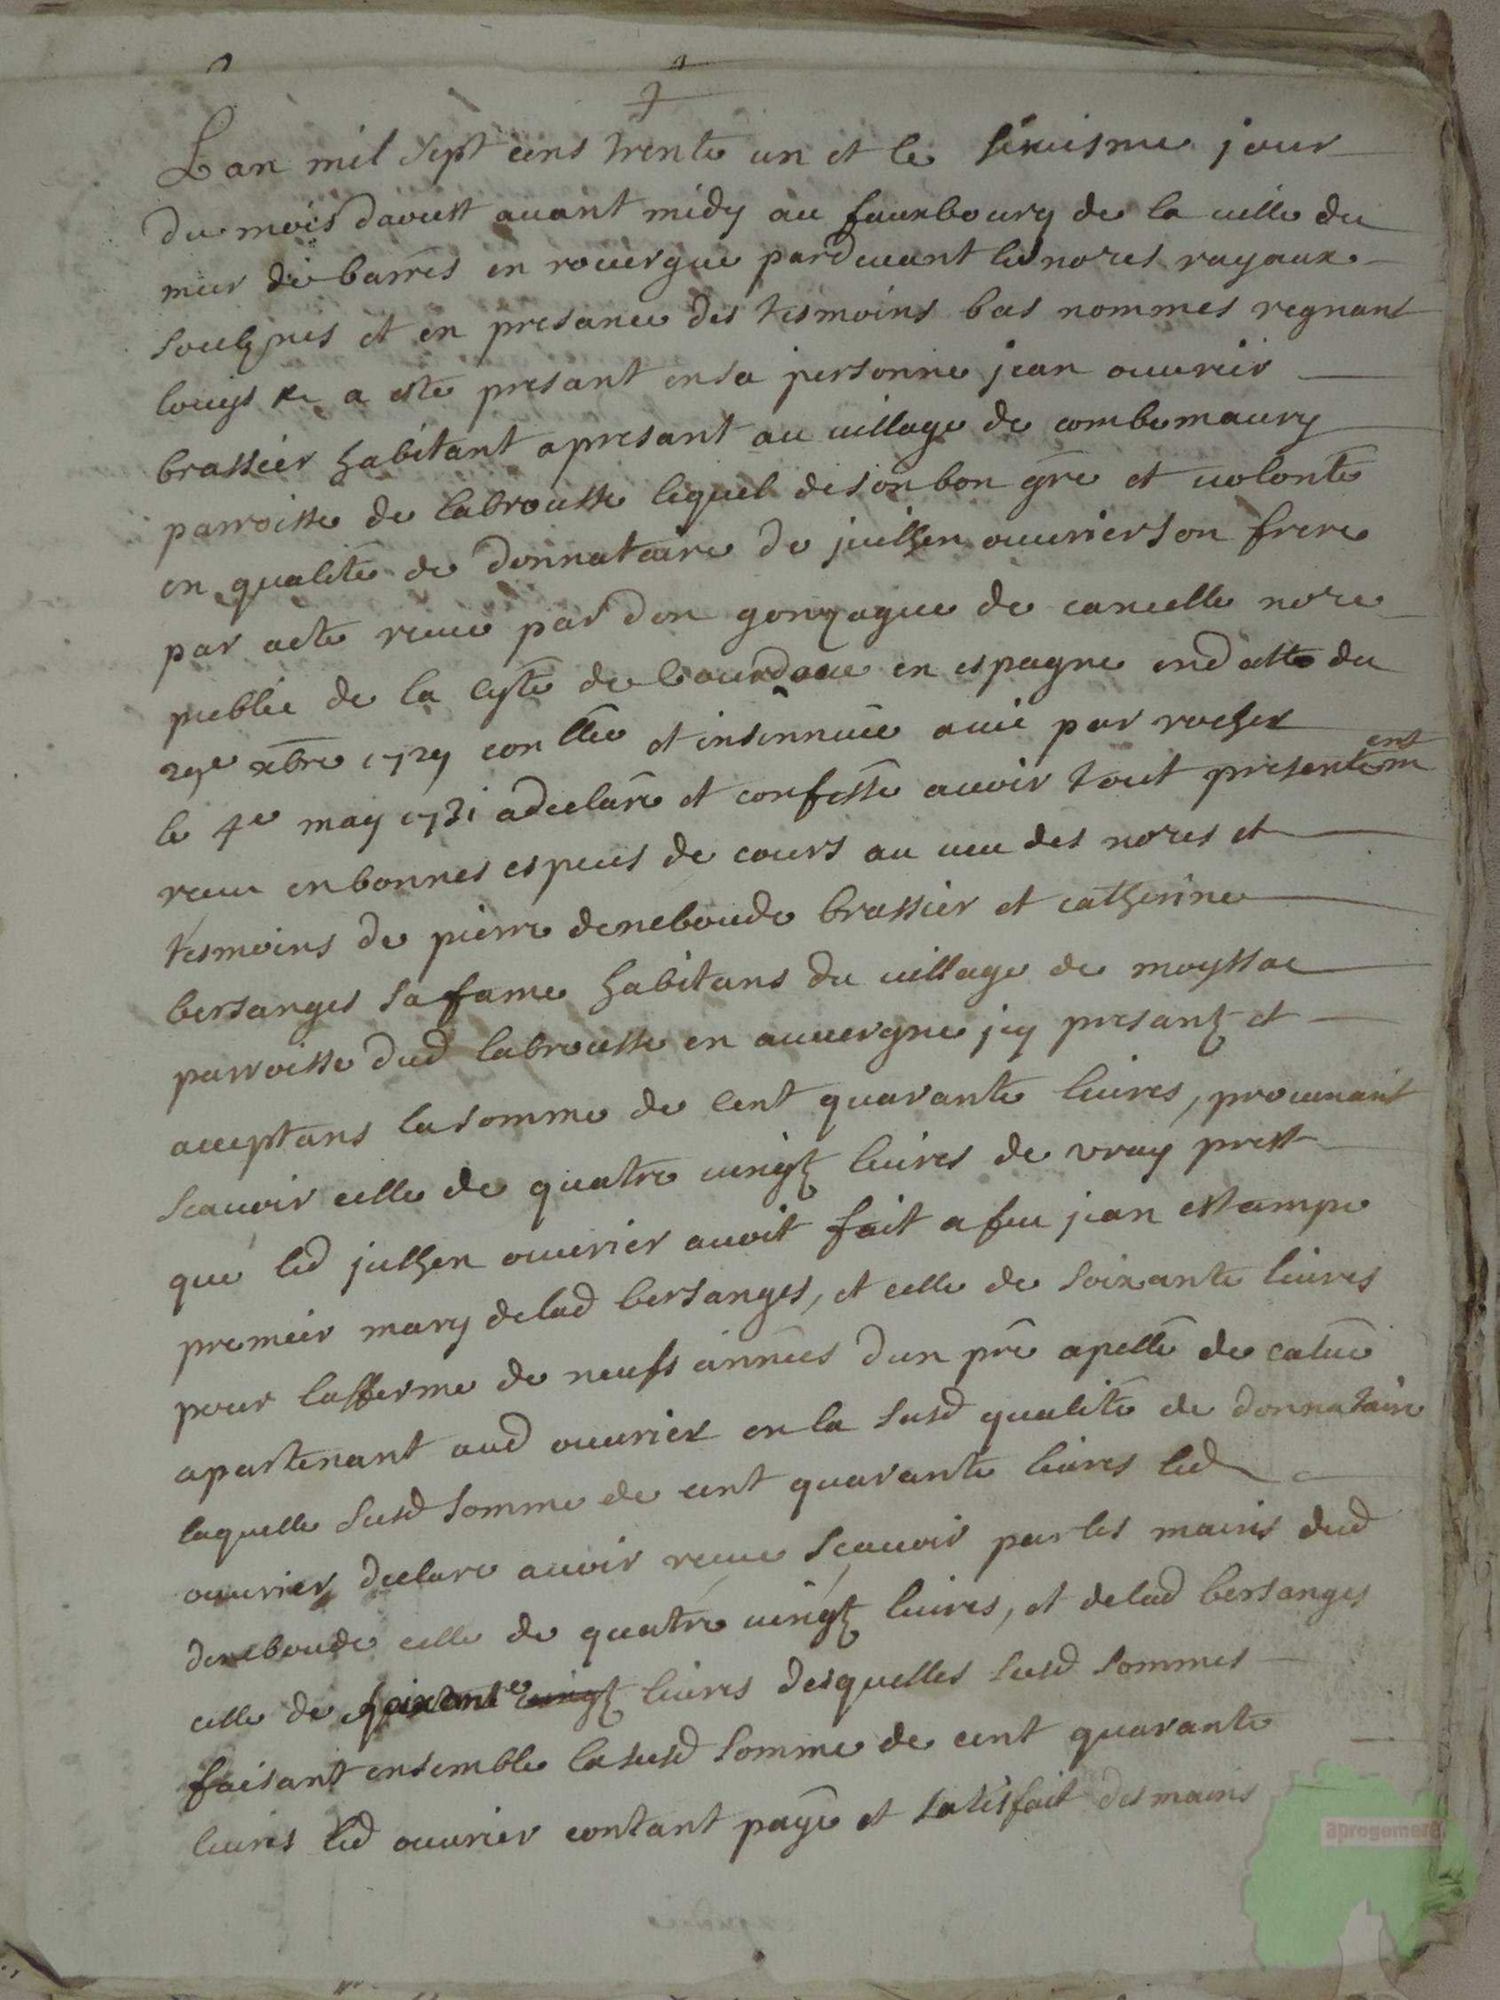 Lan mil sept cens trente un et le sixiesme jour
du mois daoust avant midy au fauxbourg de la ville du
mur de barres en rouergue pardevant les nores royaux
soulznes et en presance des tesmoins bas nommes regnant
louys a este presant en sa personne jean ouvrier
brassier habitant apresant au village de combemaury
parroisse de labrousse lequel de son bon gre et volonte
en qualite de donnataire de julhen ouvrier son frere
par acte receu par don gonzague de cancelle nore
publie de la de en espagne en datte du
29e xbre 1729 conlleé et insinnuee a vic par rocher
le 4e may 1731 a declare et confesse avoir tout presentement
receu en bonnes especes de cours au veu des nores et
tesmoins de pierre deneboude brassier et catherine
bersanges sa fame habitans du village de moyssac
parroisse dud labrousse en auvergne icy presantz et
acceptans la somme de cent quarante livres, provenant
scavoir celle de quatre vingtz livres de vray prest
que led julhen ouvrier avoit fait a feu jean estampe
premier mary de lad bersanges, et celle de soixante livres
pour lafferme de neufs années dun pré apellé de
apartenant aud ouvrier en la susd qualité de donnataire
laquelle susd somme de cent quarante livres led
ouvrier declare avoir receue scavoir par les mains dud
deneboude celle de quatre vingtz livres, et de lad bersanges
celle de soixante vingtz livres desquelles susd sommes
faisant ensemble la susd somme de cent quarante
livres led ouvrier contant payé et satisfait des mains
aprogemere